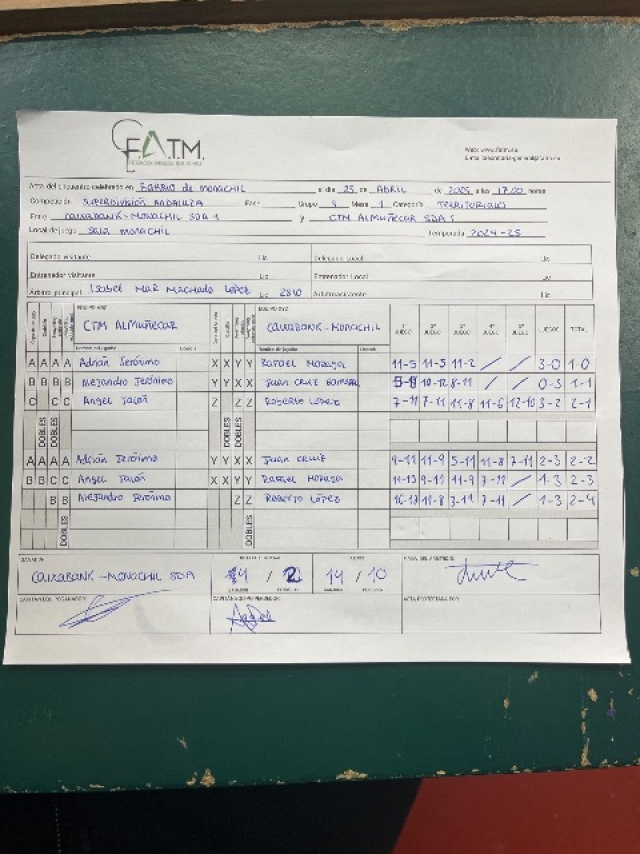 F.A.T.M.
Acta del Encuentro celebrado en BARRIO de MONACHIL el día 25 de ABRIL de 2025 a las 17:00 horas
Competición SUPERDIVISIÓN ANDALUZA Fase Grupo Mesa 1 Categoría
Entre CAIXABANK-MONACHIL SDA 1 y CTM ALMUÑECAR SDA 1
Local de juego SALA MONACHIL Temporada 2024-25
Delegado visitante Lic Delegado Local Lic.
Entrenador visitante Lic Entrenador Local Lic.
Árbitro principal ISABEL MAR MACHADO LÓPEZ Lic 2810 Árbitro asistente Lic.
CTM ALMUÑECAR CAIXABANK-MONACHIL JUEGO JUEGO JUEGO JUEGO JUEGO JUEGOS TOTAL
A A A A Adrián Jerónimo X X Y Y Rafael Moraga 11-5 11-5 11-2 / / 3-0 1-0
B B B B Alejandro Jerónimo Y Y X X Juan Cruz 10-12 8-11 / / 0-3 1-1
C C C Angel Z Z Roberto López 7-11 7-11 11-8 11-6 12-10 3-2 2-1
DOBLES DOBLES DOBLES DOBLES
A A A A Adrián Jerónimo Y Y X X Juan Cruz 9-11 11-9 5-11 11-8 7-11 2-3 2-2
B B C C Angel X X Y Y Rafael Moraga 11-13 9-11 11-9 7-11 / 1-3 2-3
B B Alejandro Jerónimo Z Z Roberto López 11-8 3-11 7-11 / 1-3 2-4
DOBLES DOBLES
CAIXABANK-MONACHIL SDA 4 / 2 14 / 10